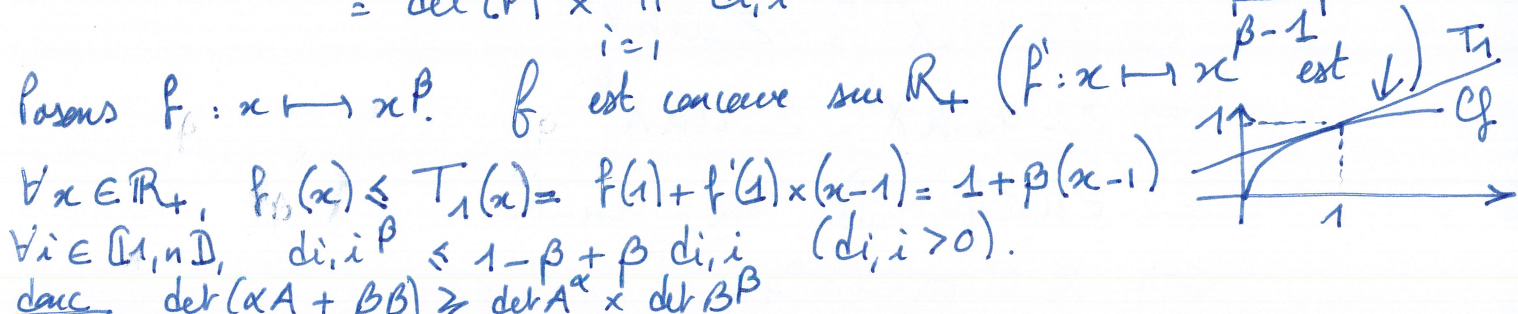 = det(P) × Π di,i
i=1
Posons f : x ⟼ x^β. f est concave sur ℝ₊ (f' : x ⟼ x^{β-1} est ↓)
T₁
Cf
1
∀x ∈ ℝ₊, f(x) ≤ T₁(x) = f(1) + f'(1) × (x-1) = 1 + β(x-1)
1
∀i ∈ ⟦1,n⟧, di,i^β ≤ 1-β + β di,i (di,i > 0).
donc det(αA + βB) ≥ det A^α × det B^β